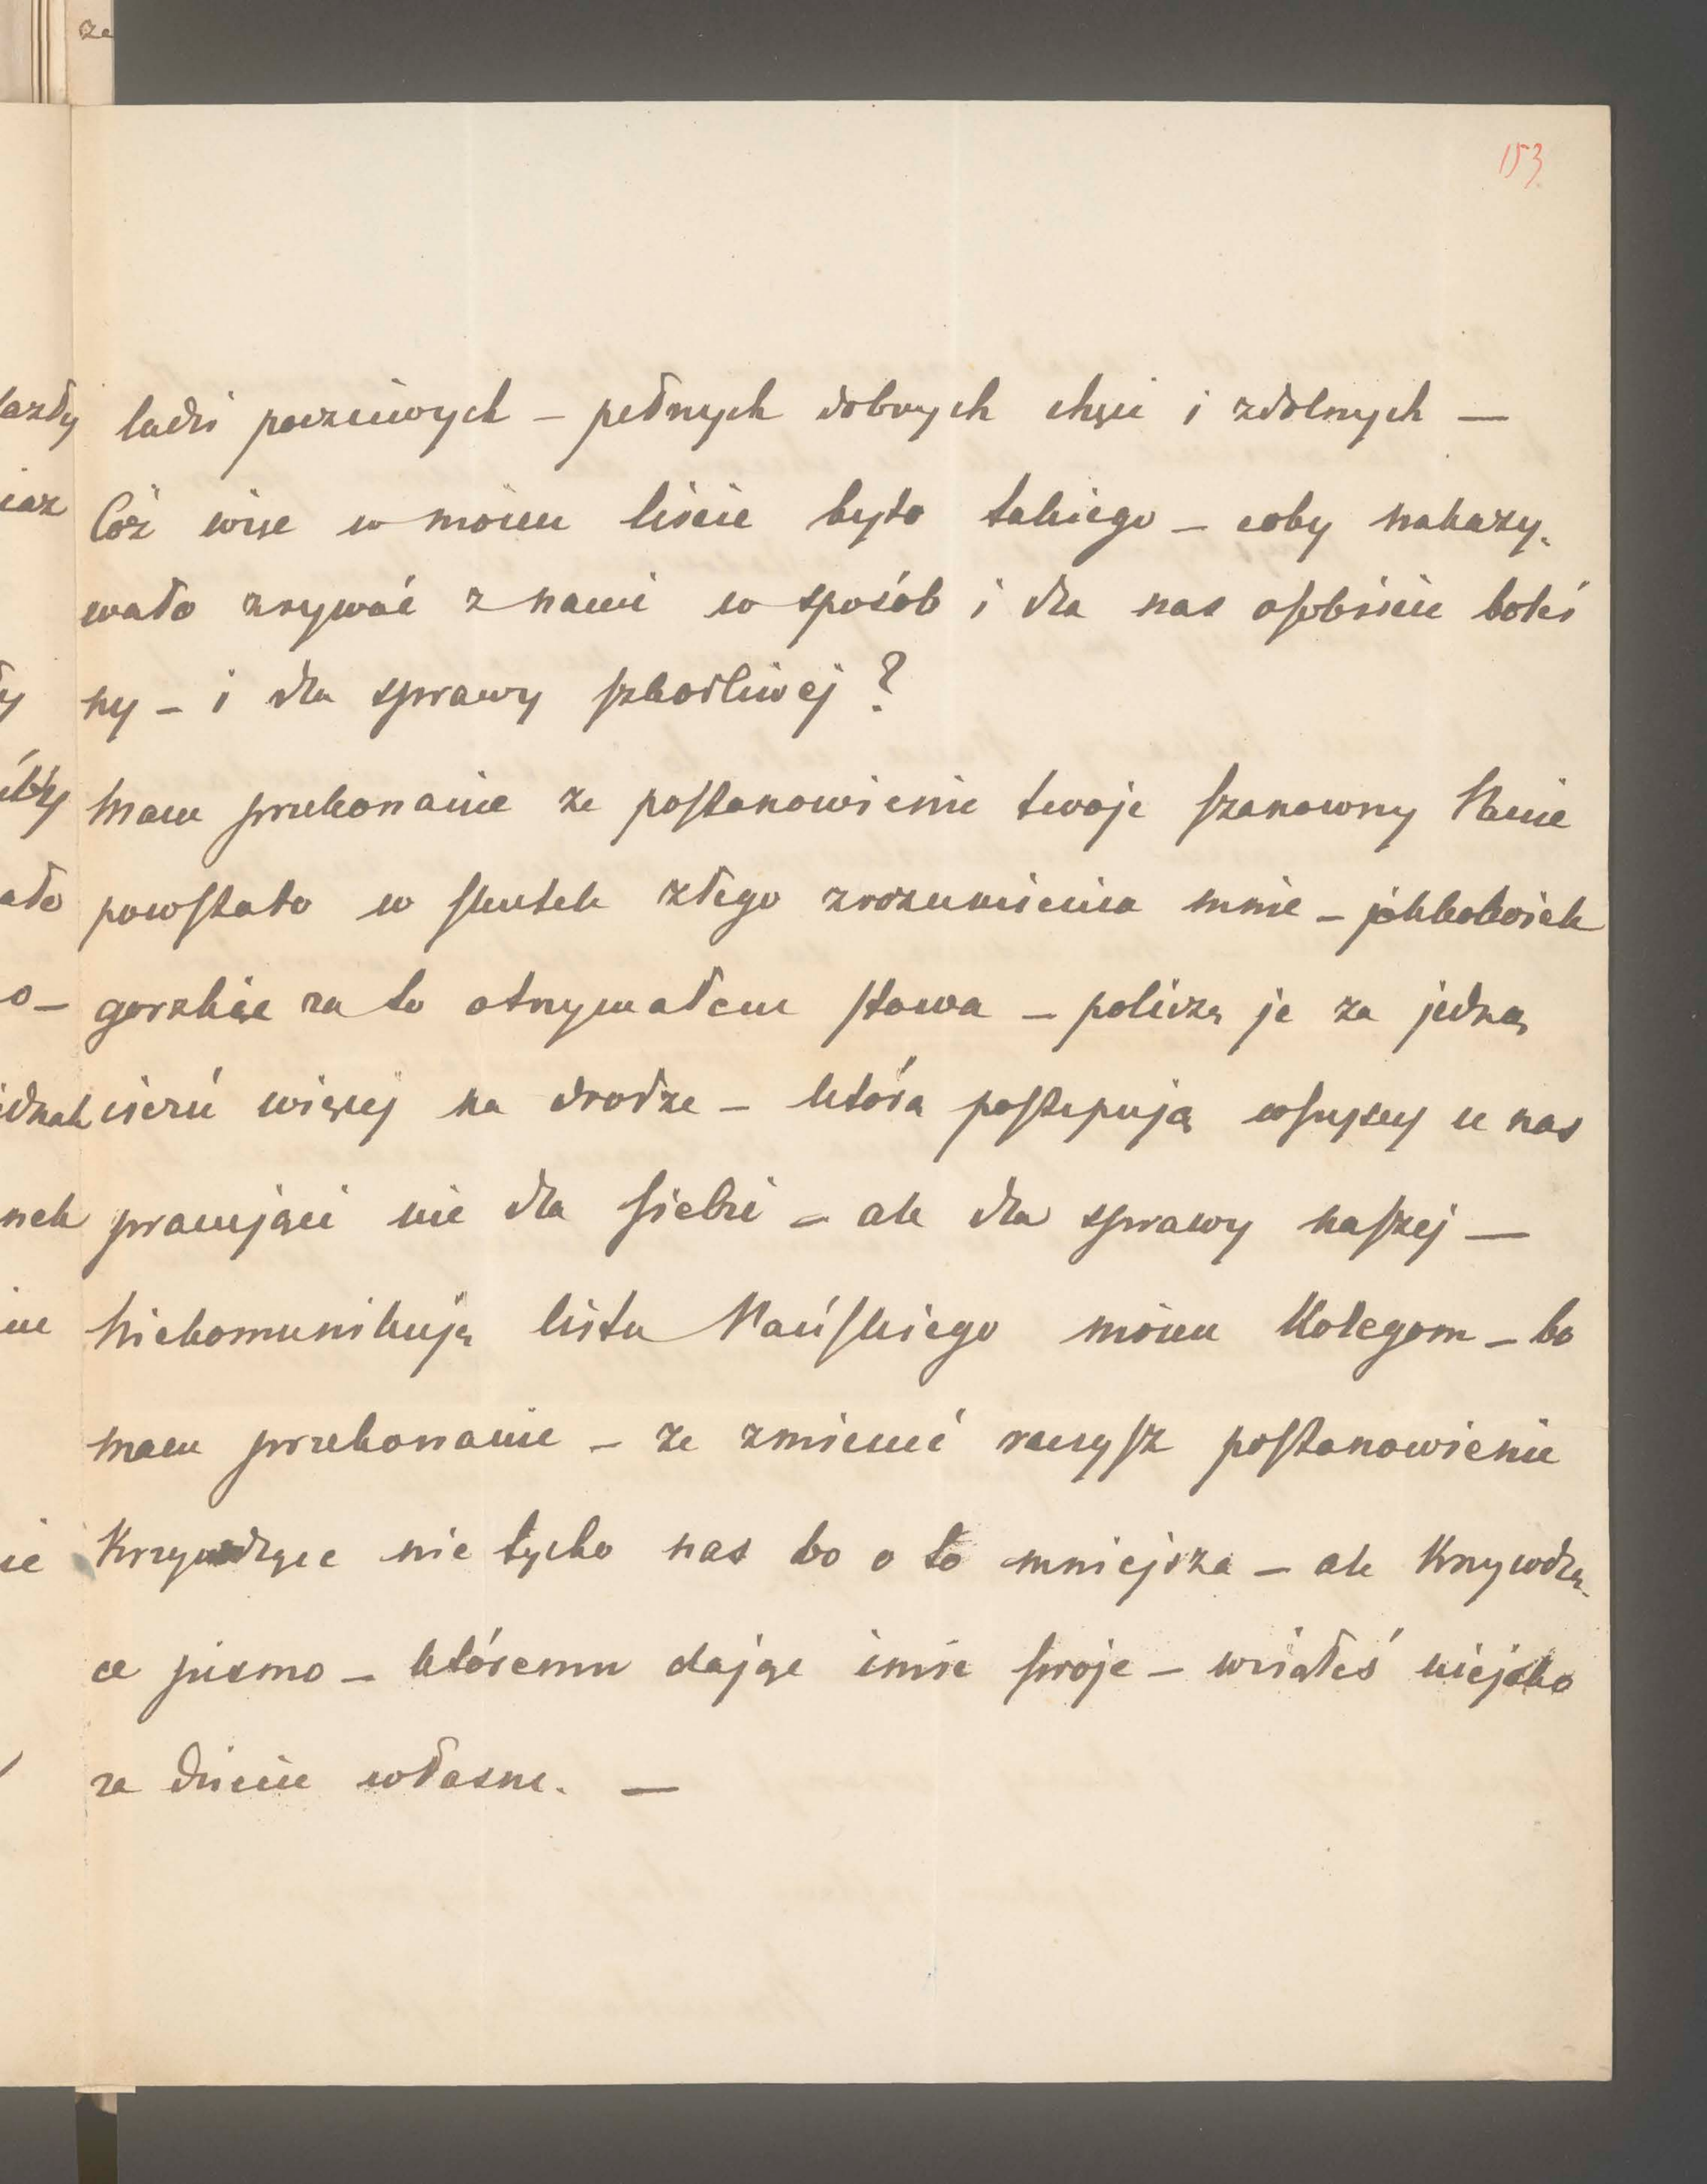 153
ludzi poczciwych – pełnych dobrych chęci i zdolnych –
Cóż więc w moim liście było takiego – coby nakazy-
wało zrywać z nami w sposób i dla nas osobiście boleś
ny – i dla sprawy szkodliwej ?
Mam przekonanie ze postanowienie twoje szanowny Panie
powstało w skutek złego zrozumienia mnie – jakkolwiek
gorzkie za to otrzymałem słowa – policzę je za jedną
cierń więcej na drodze – którą postępują wszyscy u nas
pracujący nie dla siebie – ale dla sprawy naszej –
Niekomunikuję listu Pańskiego moim Kolegom – bo
mam przekonanie – ze zmienić raczysz postanowienie
Krzywdzące nie tylko nas bo o to mniejsza – ale Krzywdzą-
ce pismo – któremu dając imie swoje – wziąłeś niejako
za dziecie własne. –